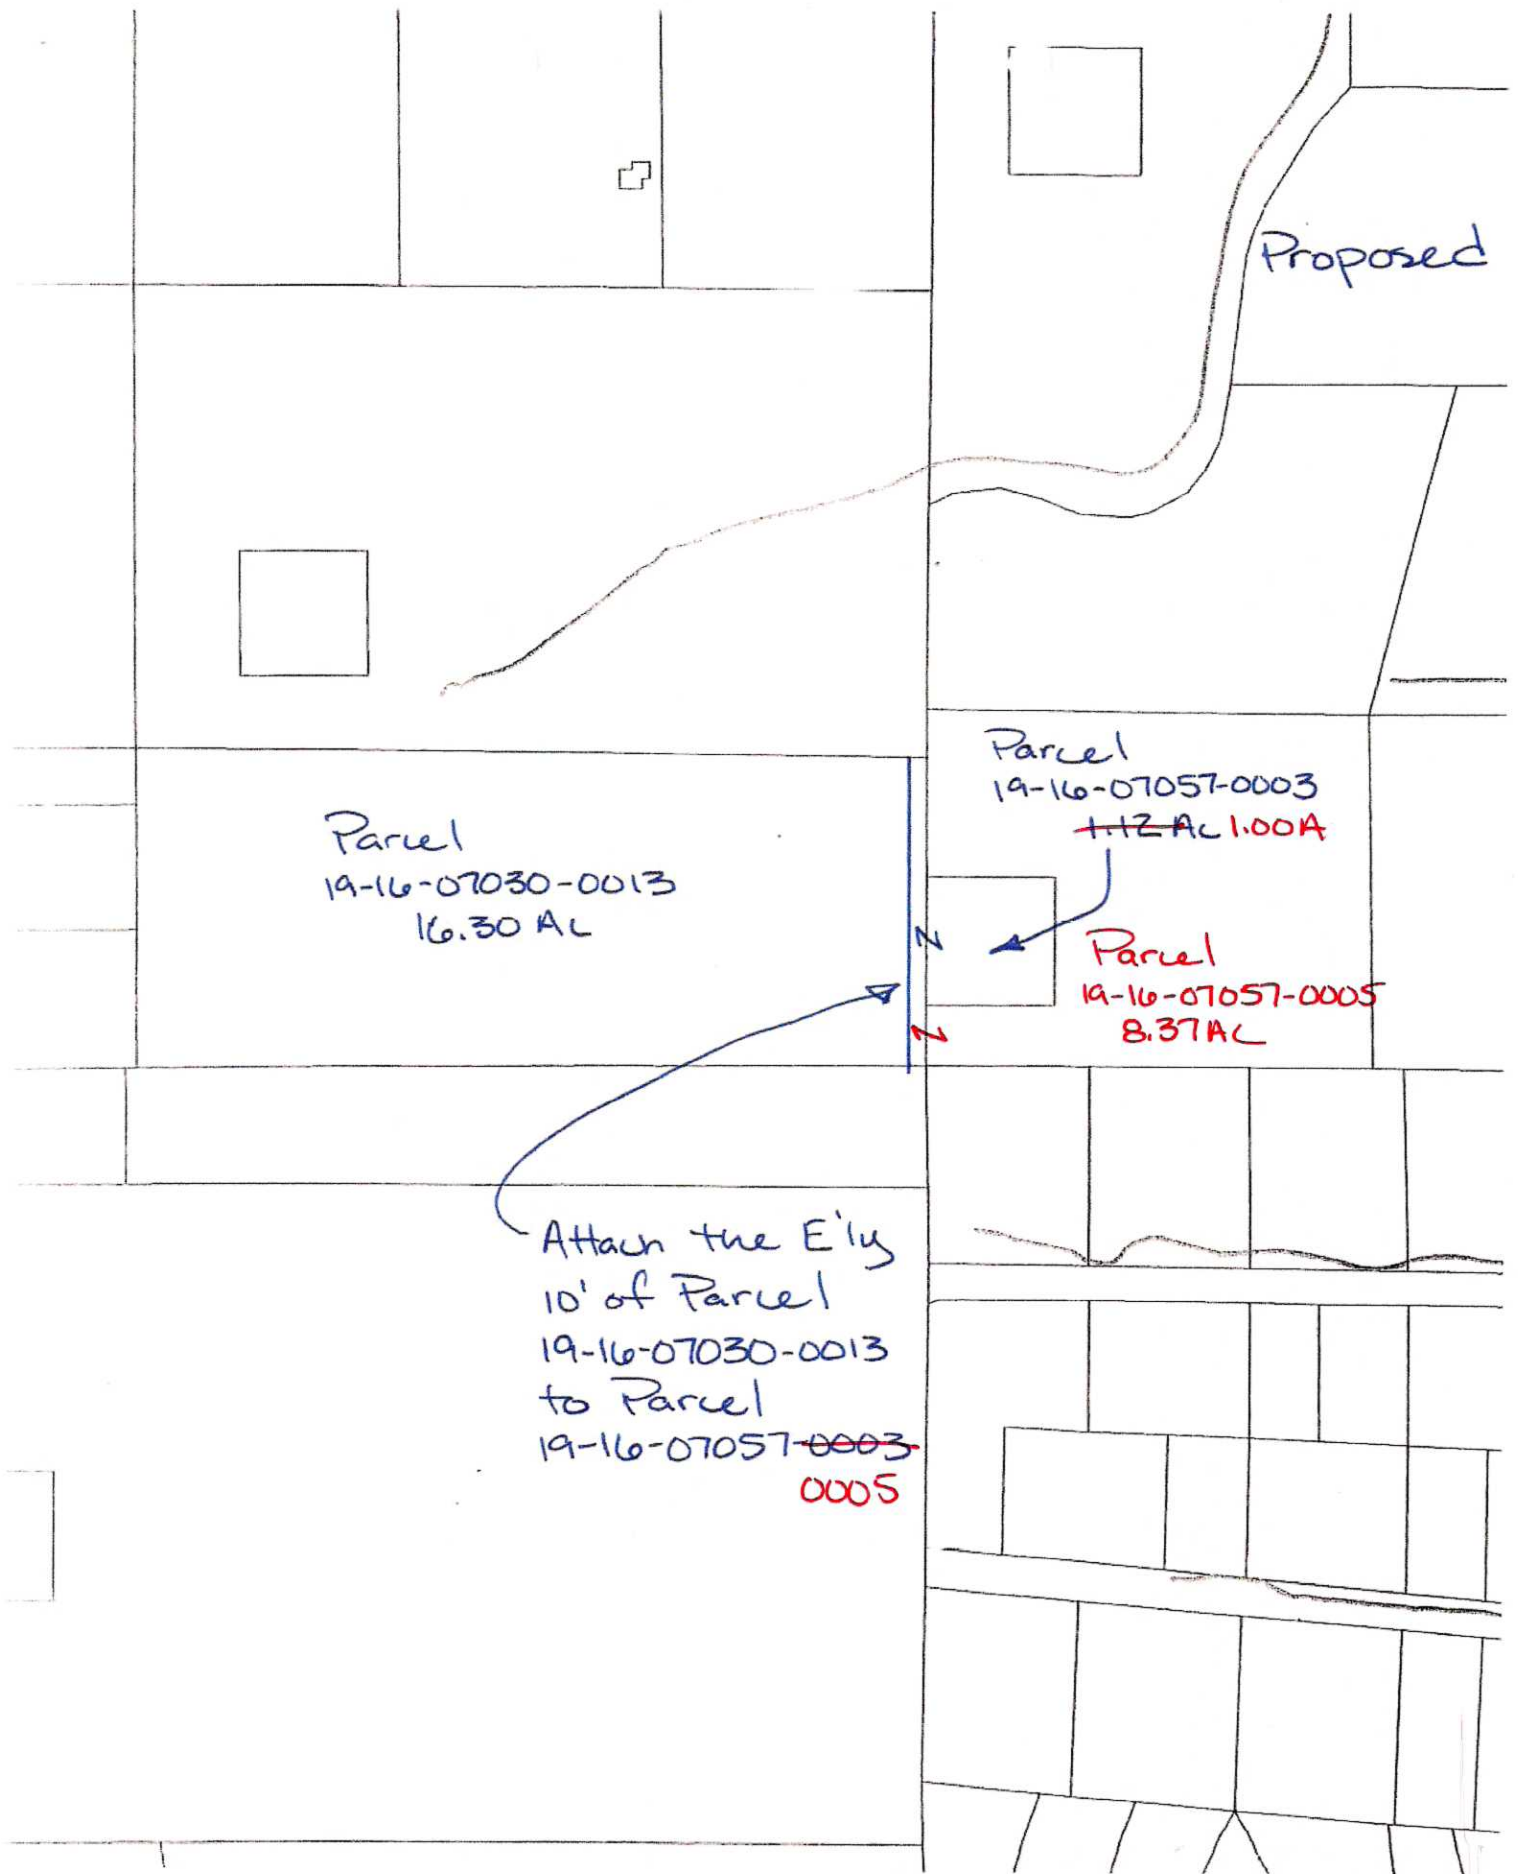 Proposed
Parcel
19-16-07057-0003
1.12 AC 1.00A
Parcel
19-16-07030-0013
16.30 AC
Z
Parcel
19-16-07057-0005
8.37 AC
Z
Attach the E'ly
10' of Parcel
19-16-07030-0013
to Parcel
19-16-07057-0003
0005